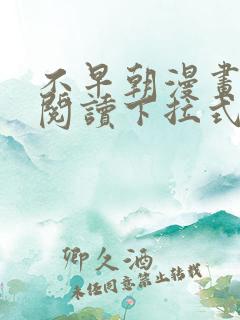 不早朝漫畫
閱讀下拉式
卿久酒
未經同意禁止轉載